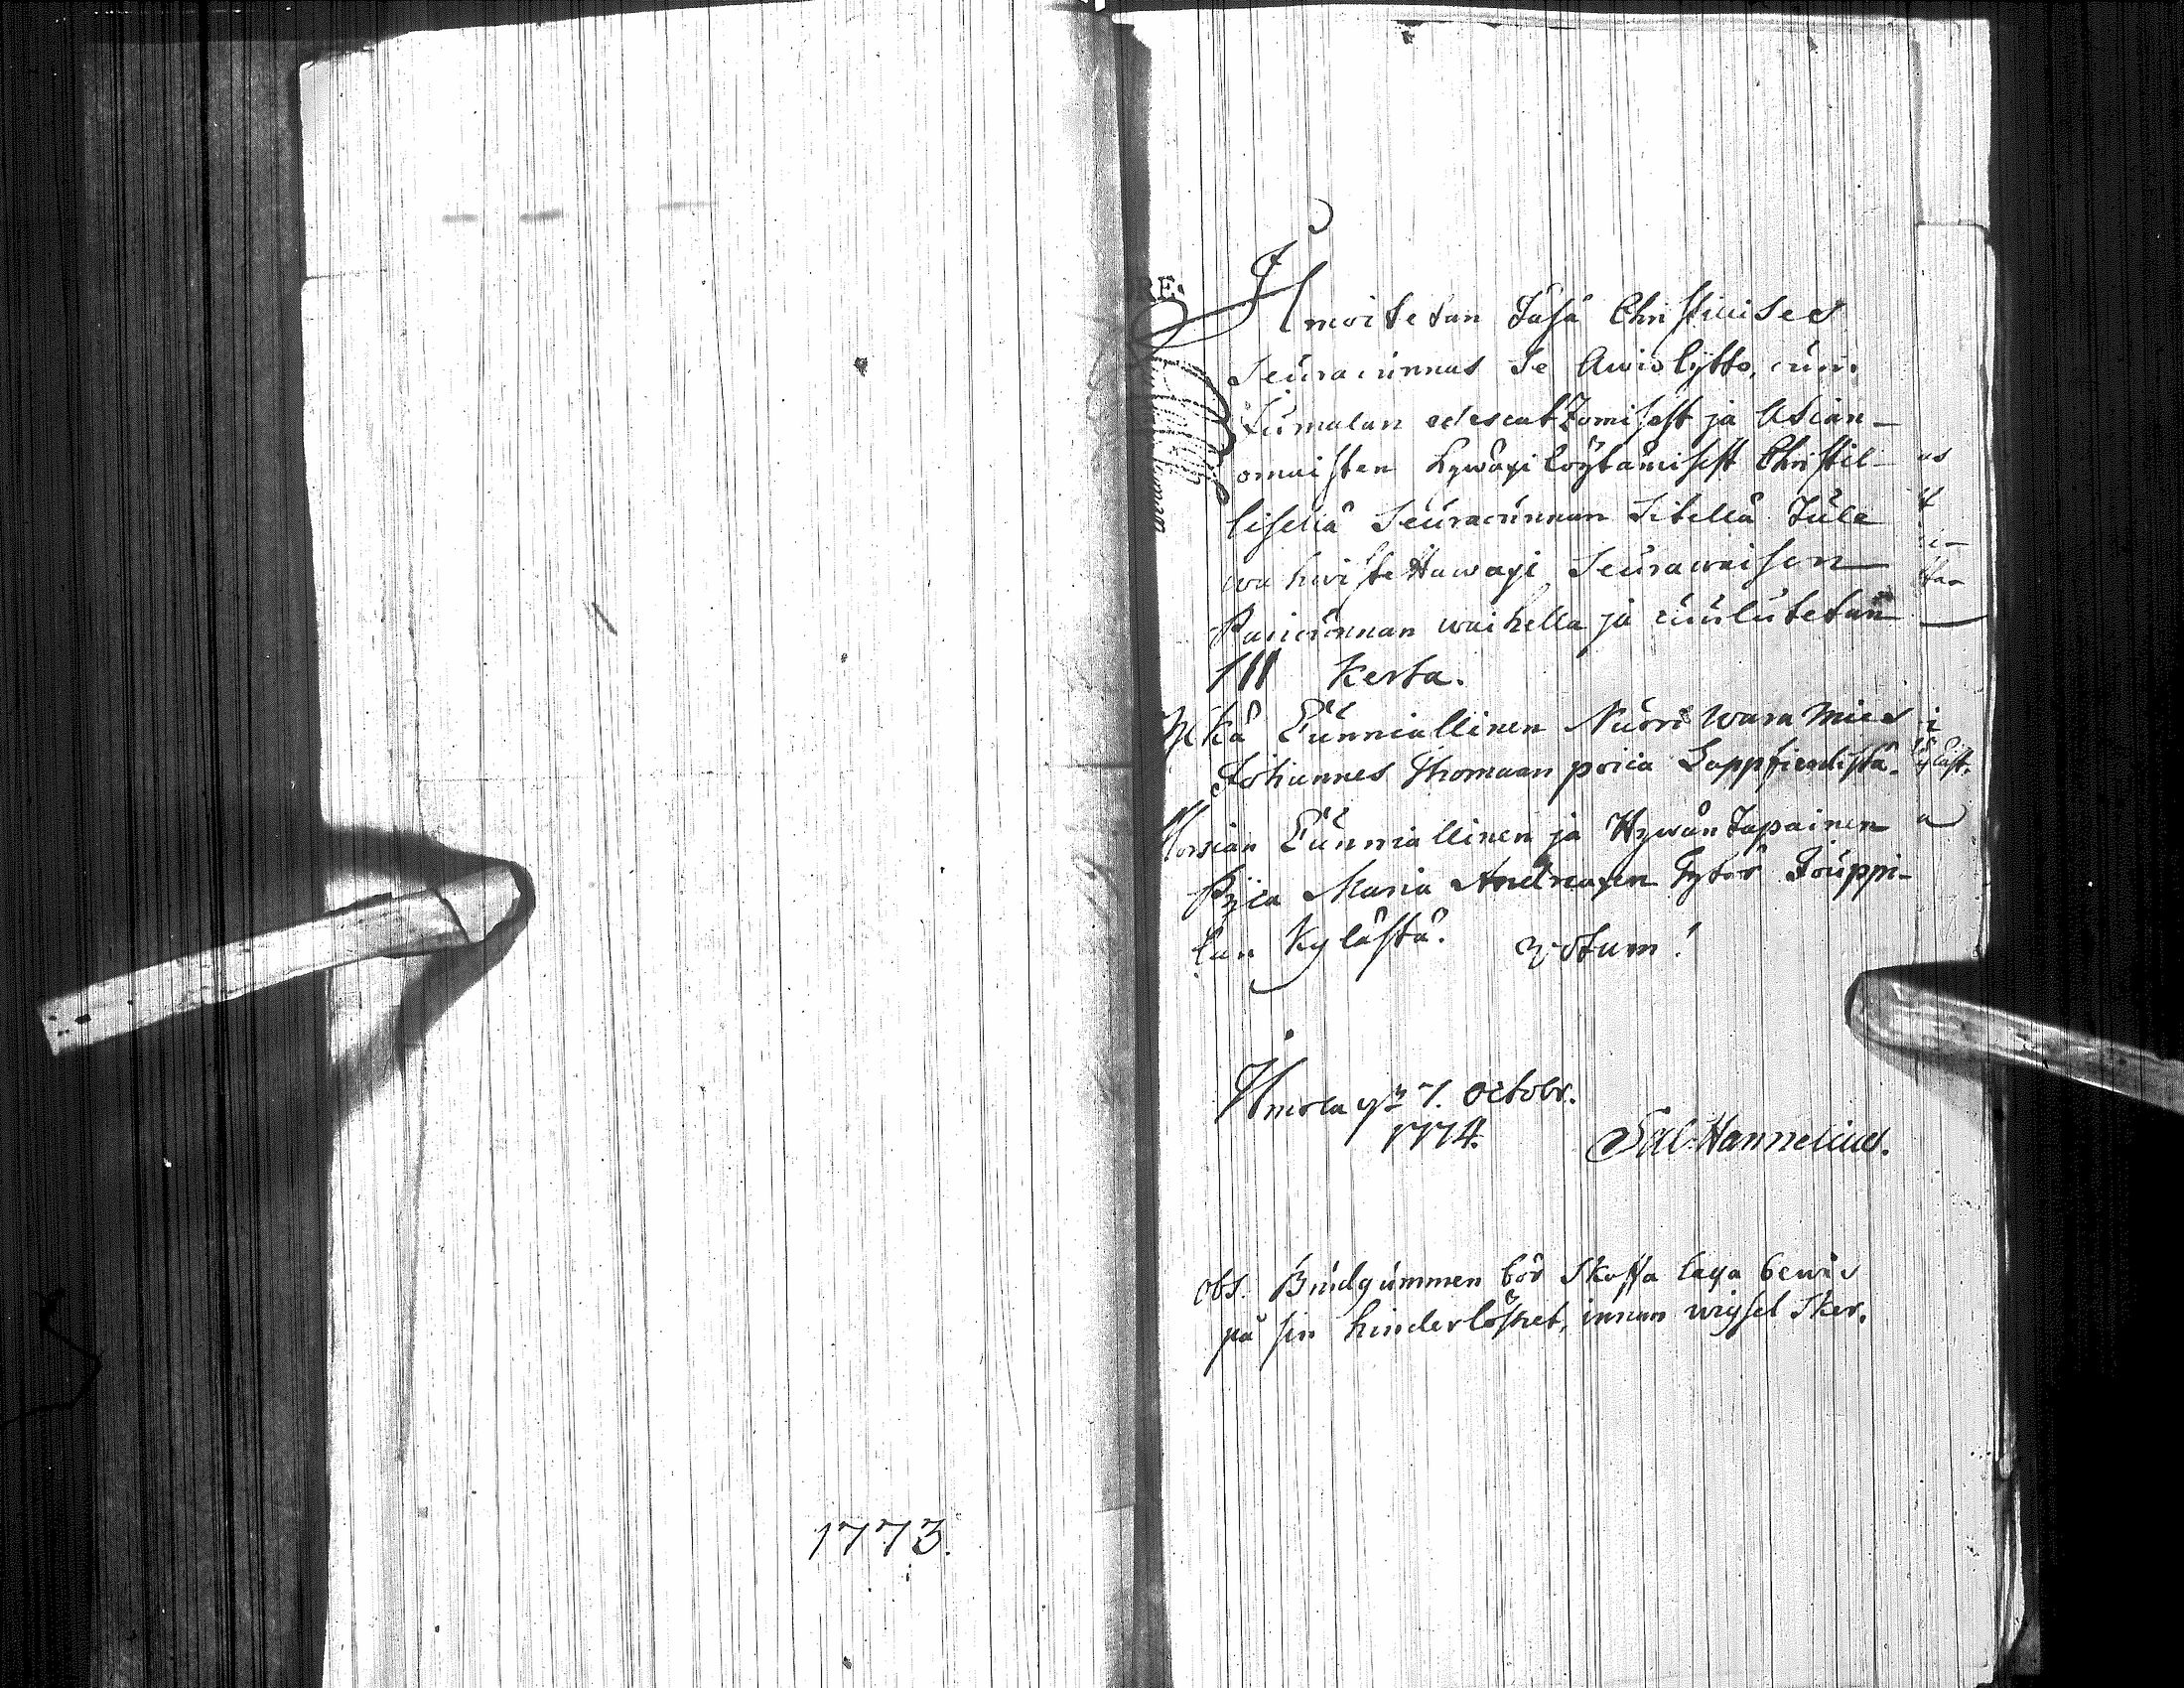 1773.
RE.
Ilmoitetan Täsä Christilises
Seuracunnas se Awioliitto, cuin
Jumalan edescatzomisest ja Asian-
omaisten hywäxi löytämisest Christil-
lisellä Seuracunnan sitellä Tule
wahwistettawaxi Seurawaisen
Pariscunnan waihella ja cuulutetan
III Kerta.
Ylkä Cunniallinen Nuori wara Mies
Johannes Thomaan poica Lappfierdistä.
Morsian Cunniallinen ja Hywäntapainen
Pijca Maria Andreaxen Tytär Jouppi-
lan Kylästä. Votum!
Ilmola 7. Octobr.
1774.
Sal. Hannelius.
obs. Brudgummen bör skaffa laga bewis
på sin hinderlöshet, innan wigsel sker.